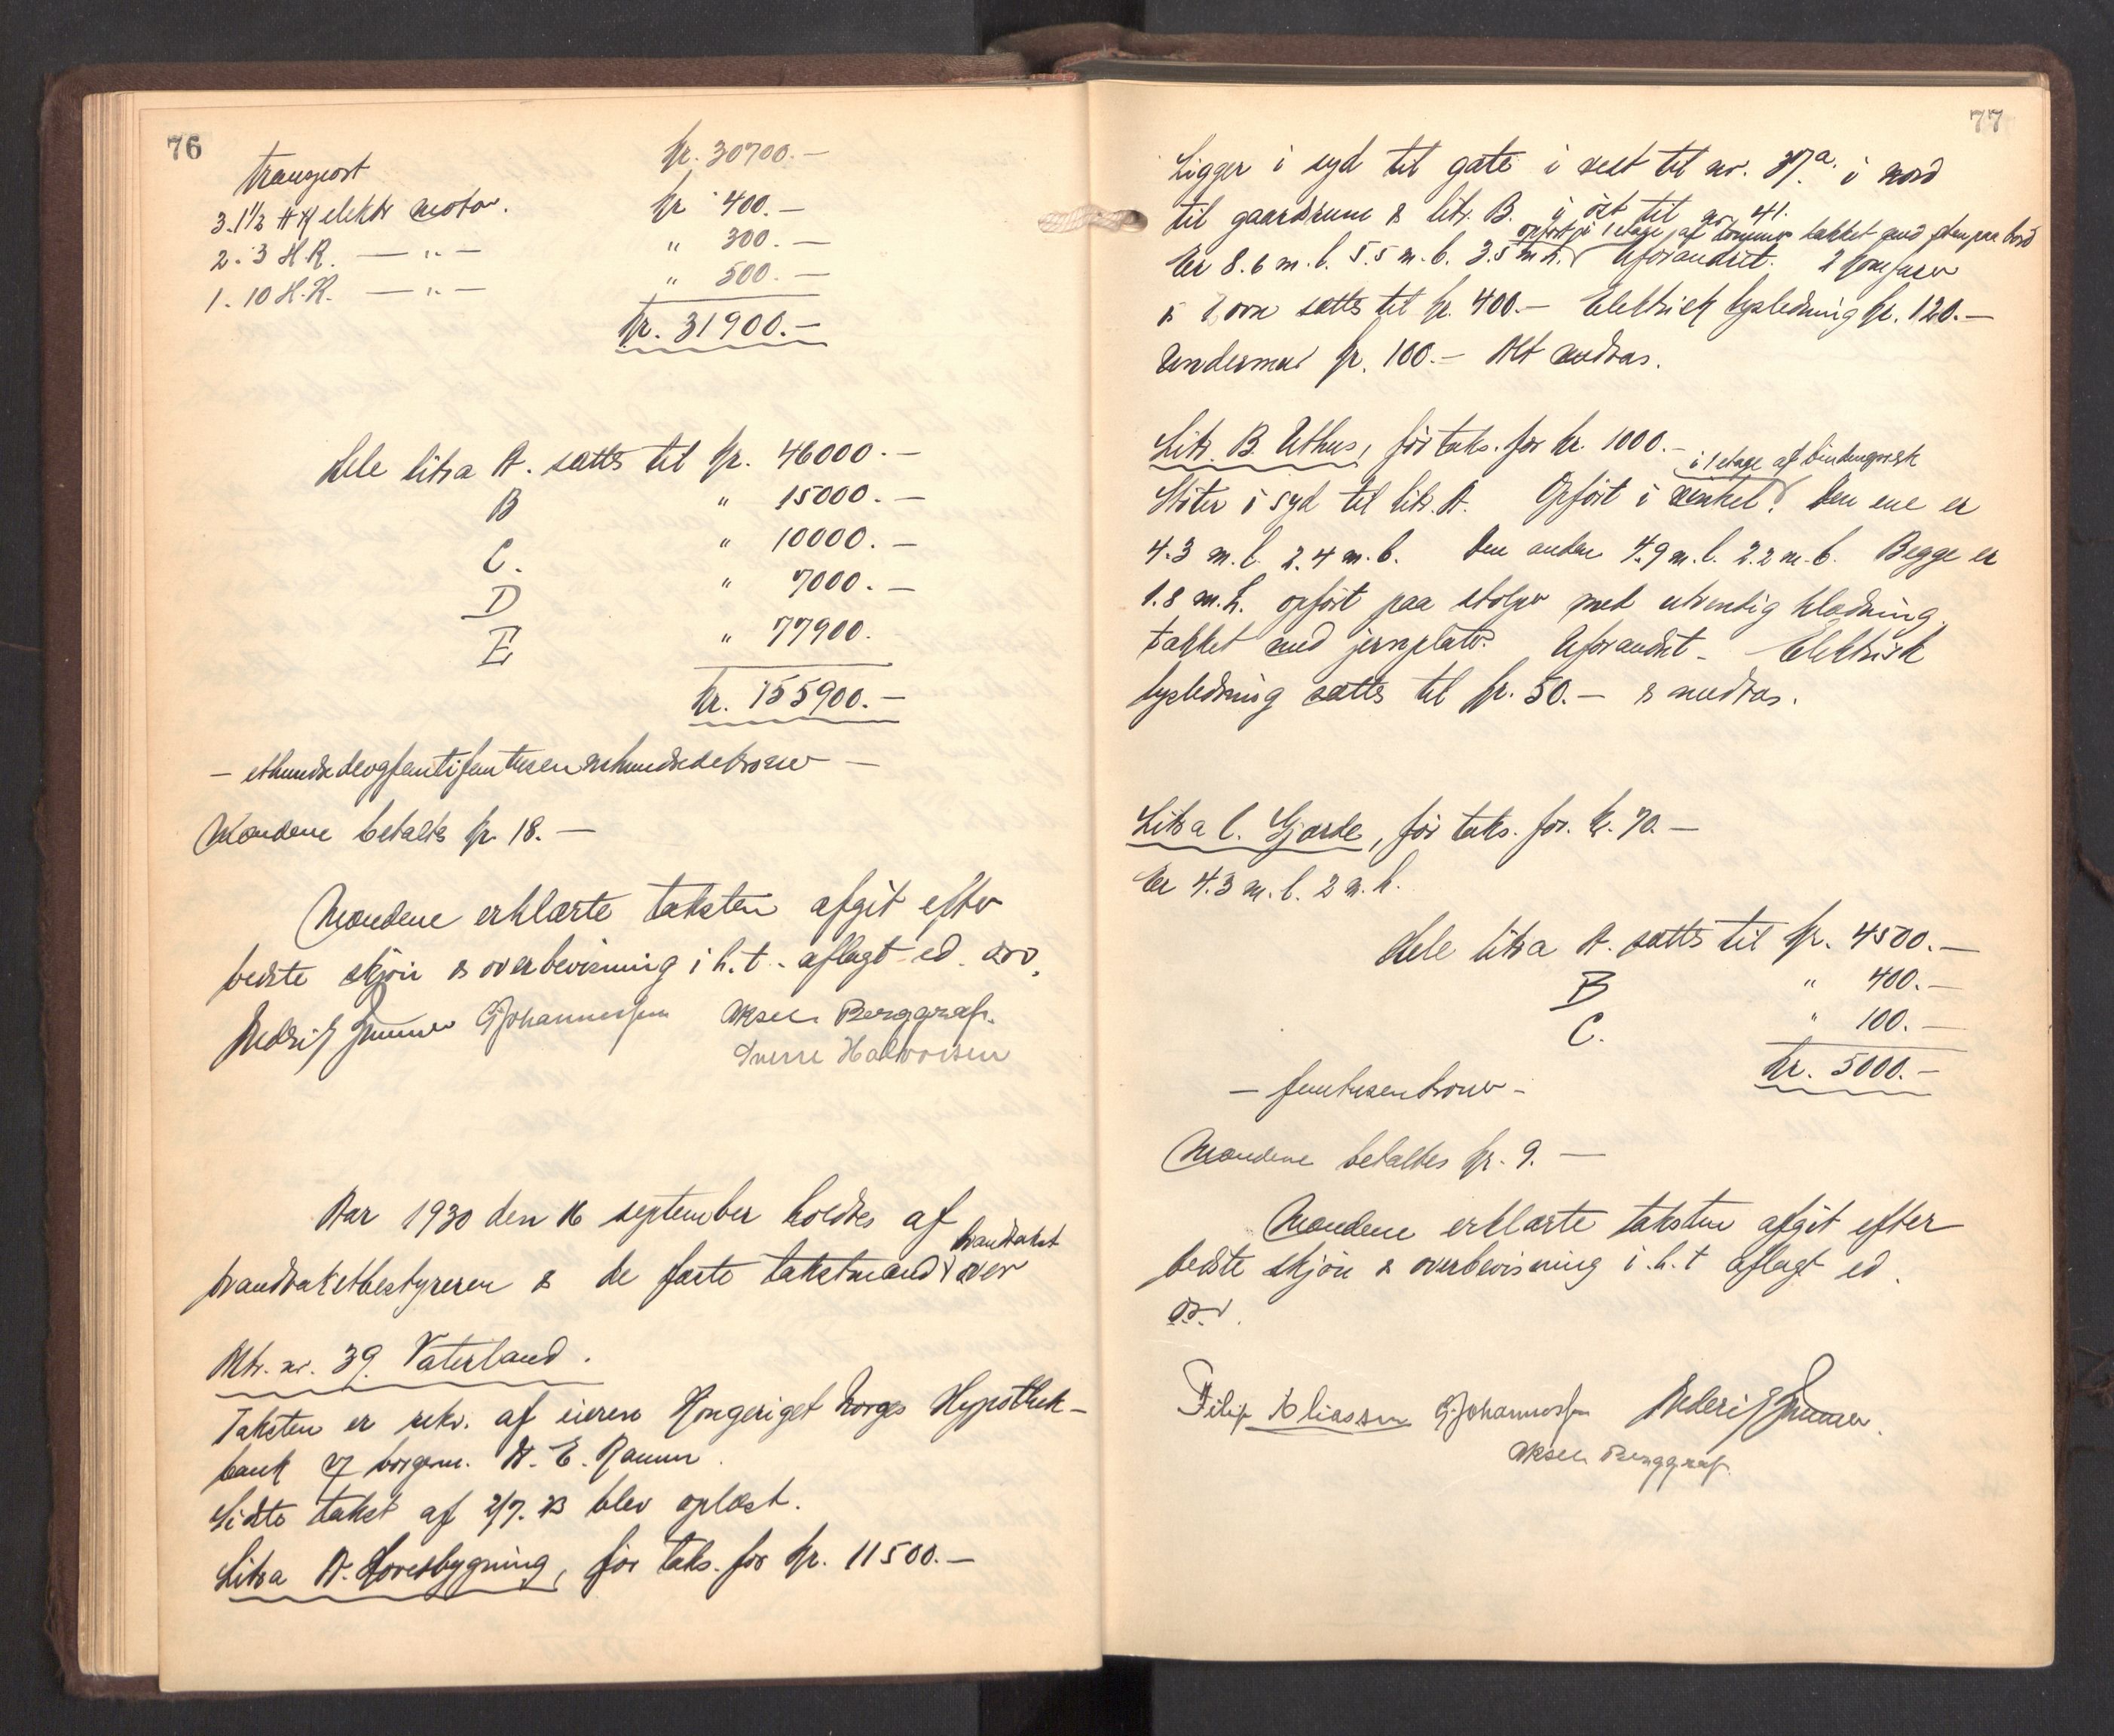 76
Transport kr. 30700.-
3. 1½ HK elektr motor. kr 400.-
2. 3 H.K. — " — " 300.-
1. 10 H.K. — " — " 500.-
kr. 31900.-
Hele litra A. sættes til kr. 46000.-
B " 15000.-
C. " 10000.-
D " 7000.-
E " 77900.
kr. 155900.-
- ethundredeogfemtifemtusennihundredekroner -
Mændene betaltes kr. 18.-
Mændene erklærte taksten afgit efter
bedste skjøn & overbevisning i h.t. aflagt ed.
G Johannessen Aksel Berggraf.
Sverre Halvorsen
Aar 1930 den 16 september holdtes af
branntakst
brandtakstbestyreren & de faste takstmænd over
Mtr. nr. 39 Vaterland.
Taksten er rekv. af eieren Kongeriget Norges Hypothek-
bank v/ borgerm. A. E. Ramm.
Sidste takst af 2/7. 23 blev oplæst.
Litra A. Hovedbygning, før taks. for kr. 11500.-
77
Ligger i syd til gate i vest til nr. 37a. i nord
til gaardsrum & litr. B. i øst til nr. 41.
opført i 1 etage af tømmer tækket med sten paa bord
Er 8.6 m. l. 5.5 m. b. 3.5 m h. Uforandret. 2 komfurer
& 1 ovn sættes til kr. 400.- Elektrisk lysledning kr. 120.-
Undermur kr. 100.- Alt medtas.
Litr. B. Uthus, før taks. for kr. 1000.-
i 1 etage af bindingsverk
Støter i syd til litr. A. Opført i vinkel. Den ene er
4.3 m. l. 2.4 m. b. Den anden 4.9 m. l. 2.2 m. b. Begge er
1.8 m. h. opført paa stolper med utvendig klædning.
tækket med jernplater. Uforandret - Elektrisk
lysledning sættes til kr. 50.- & medtas.
Litra C. Gjærde, før taks. for. kr. 70.-
Er 4.3 m. l. 2 m. h.
Hele litra A. sættes til kr. 4500.-
B " 400.-
C. " 100.-
kr. 5000.-
- femtusenkroner -
Mændene betaltes kr. 9.-
Mændene erklærte taksten afgit efter
bedste skjøn & overbevisning i. h. t aflagt ed.
Filip Eliassen G Johannessen
Aksel Berggraf.